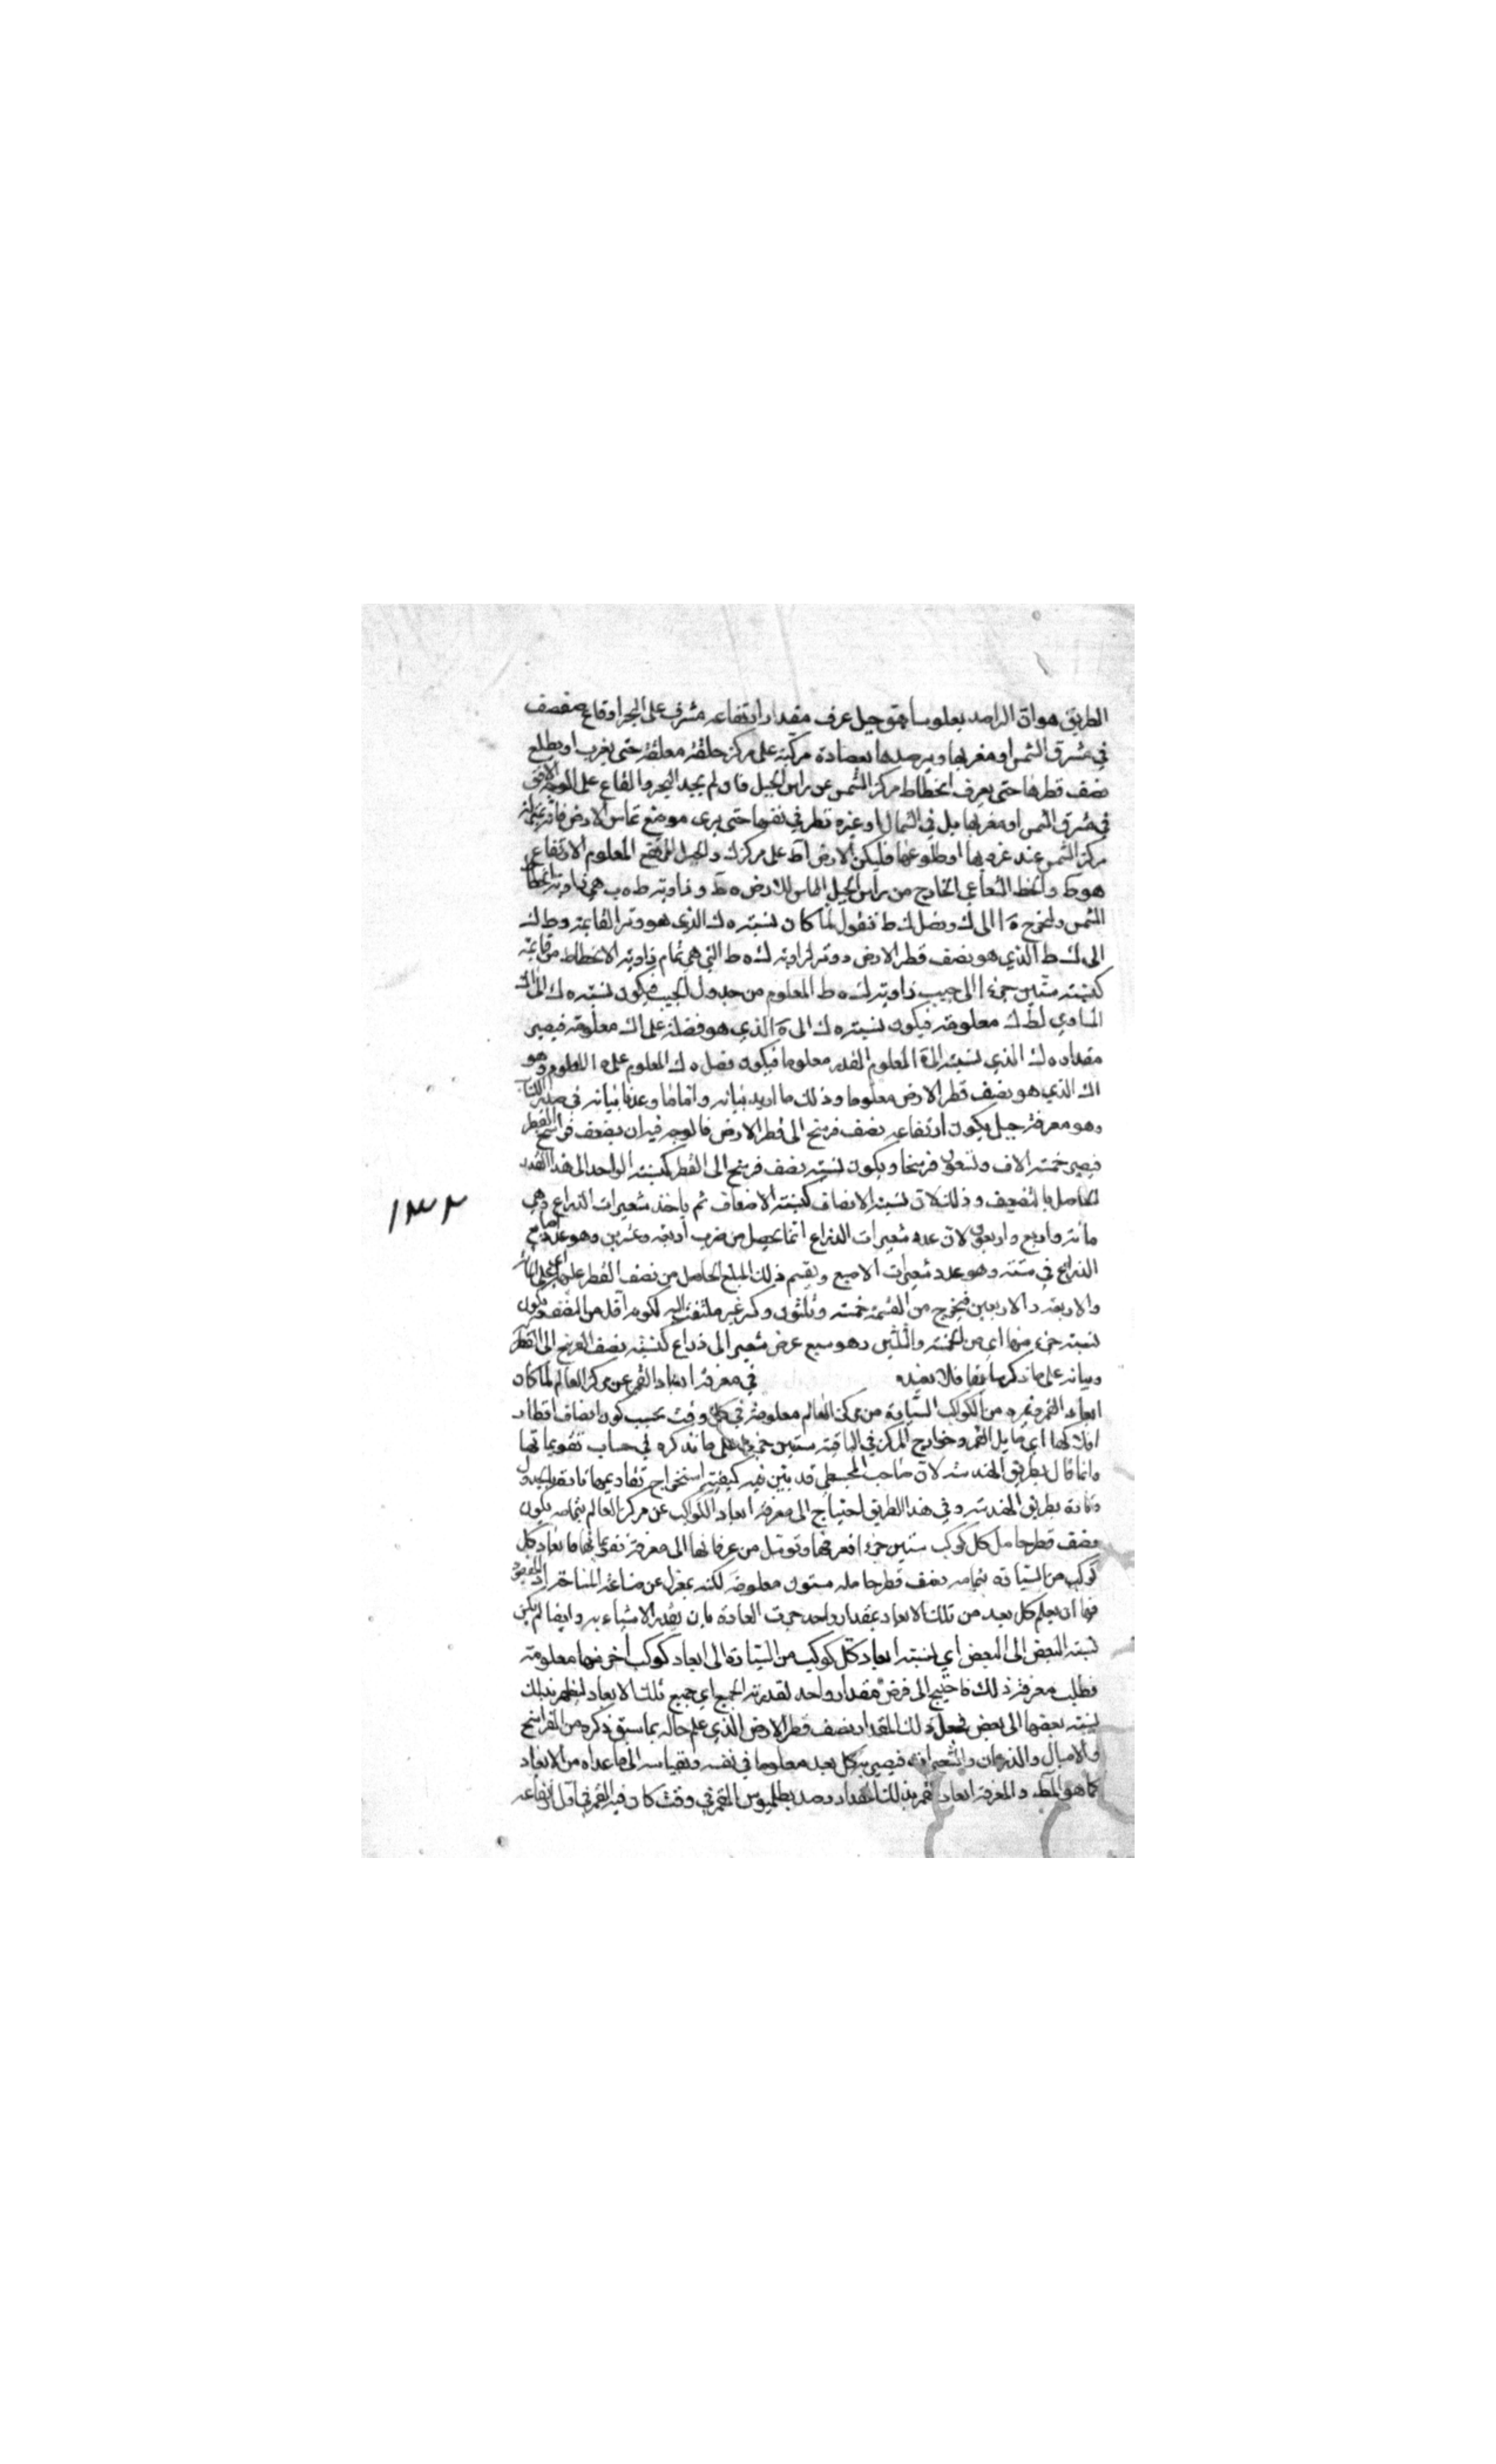 الطريق هو ان الراصد يعلو ساهق جبل عرف مقدار ارتفاعه مشرف على البحر او قاع صفصف
في مشرق الشمس او مغربها ويرصدها بعضادة مركبة على مركز حلقة معلقة حتى يغرب او يطلع
نصف قطرها حتى يعرف انحطاط مركز الشمس عن راس الجبل فان لم يجد البحر والقاع على الوجه
في مشرق الشمس او مغربها بل في الشمال او غيره نظر في نفسها حتى يرى موضع تماس الارض
مركز الشمس عند غروبها او طلوعها فليكن الارض اط على مركز ك والجبل المرتفع المعلوم الارتفاع
هو ط والخط الشعاعي الخارج من راس الجبل المماس للارض ه ط وزاوية ط ه ب هي زاوية انحطاط
الشمس ولنخرج ه ا الى ك ونصل ك ط فنقول لما كان نسبة ه ك الذي هو وتر القائمة وط ك
الى ك ط الذي هو نصف قطر الارض ووتر لزاوية ك ه ط التي هي تمام زاوية الانحطاط من قائمة
كنسبة ستين جزءا الى جيب زاوية ك ه ط المعلوم من جدول الجيب فيكون نسبة ه ك الى اك
المساوي لط ك معلومة فيكون نسبة ه ك الى ه ا الذي هو فضله على اك معلومة فيصير
مقدار ه ك الذي نسبته الى ه ا المعلوم القدر معلوما فيكون فضل ه ك المعلوم على ه ا المعلوم وهو
اك الذي هو نصف قطر الارض معلوما وذلك ما اريد بيانه واما ما وعدنا بيانه في صدر الكتاب
وهو معرفة جبل يكون ارتفاعه نصف فرسخ الى قطر الارض فالوجه فيه ان يضعف فراسخ القطر
فيصير خمسة الاف وتسعون فرسخا ويكون نسبة نصف فرسخ الى القطر كنسبة الواحد الى هذا القدر
الحاصل بالتضعيف وذلك لان نسبة الانصاف كنسبة الاضعاف ثم ياخذ شعيرات الذراع وهي
مائة واربع واربعون لان عدد شعيرات الذراع انما يحصل من ضرب اربعة وعشرين وهو عدد اصابع
الذراع في ستة وهو عدد شعيرات الاصبع ويقسم ذلك المبلغ الحاصل من نصف القطر عليها اعني على المائة
والاربعة والاربعين فيخرج من القسمة خمسة وثلثون وكسر غير ملتفت اليه لكونه اقل من النصف فيكون
نسبة جزء منها اي من الخمسة والثلثين وهو سبع عرض شعير الى ذراع كنسبة نصف الفرسخ الى القطر
وبيانه على ما ذكر سابقا فلا نعيده في معرفة ابعاد القمر عن مركز العالم لما كان
ابعاد القمر وغيره من الكواكب السيارة من مركز العالم معلومة في كل وقت بحسب كون انصاف اقطار
افلاكها اي مايل القمر وخوارج المركز في الباقية ستين جزءا على ما نذكره في حساب تقويماتها
وانما قال بطريق الهندسة لان صاحب المجسطي قد بين فيه كيفية استخراج تقاويمها تارة بالجدول
وتارة بطريق الهندسة وفي هذا الطريق احتياج الى معرفة ابعاد الكواكب عن مركز العالم بما به يكون
نصف قطر حامل كل كوكب ستين جزءا فعرفها وتوسل من عرفانها الى معرفة تقويماتها فابعاد كل
كوكب من السيارة بما به نصف قطر حامله ستون معلومة لكنه بمعزل عن صناعة المناخة اذ المقصود
فيها ان يعلم كل بعد من تلك الابعاد بمقدار واحد جرت العادة بان يقدر الاشياء به وايضا لم يكن
نسبة البعض الى البعض اي نسبة ابعاد كل كوكب من السيارة الى ابعاد كوكب اخر منها معلومة
فطلب معرفة ذلك فاحتيج الى فرض مقدار واحد لتقدير الجميع اي جميع تلك الابعاد ليظهر بذلك
نسبة بعضها الى بعض فجعل ذلك المقدار نصف قطر الارض الذي علم حاله بما سبق ذكره من الفراسخ
والاميال والذرعان والشعيرات فيصير كل بعد معلوما في نفسه وبقياسه الى ما عداه من الابعاد
كما هو المط ولمعرفة ابعاد القمر بذلك المقدار رصد بطلميوس القمر في وقت كان فيه القمر في اول ارتفاعه
١٣٢